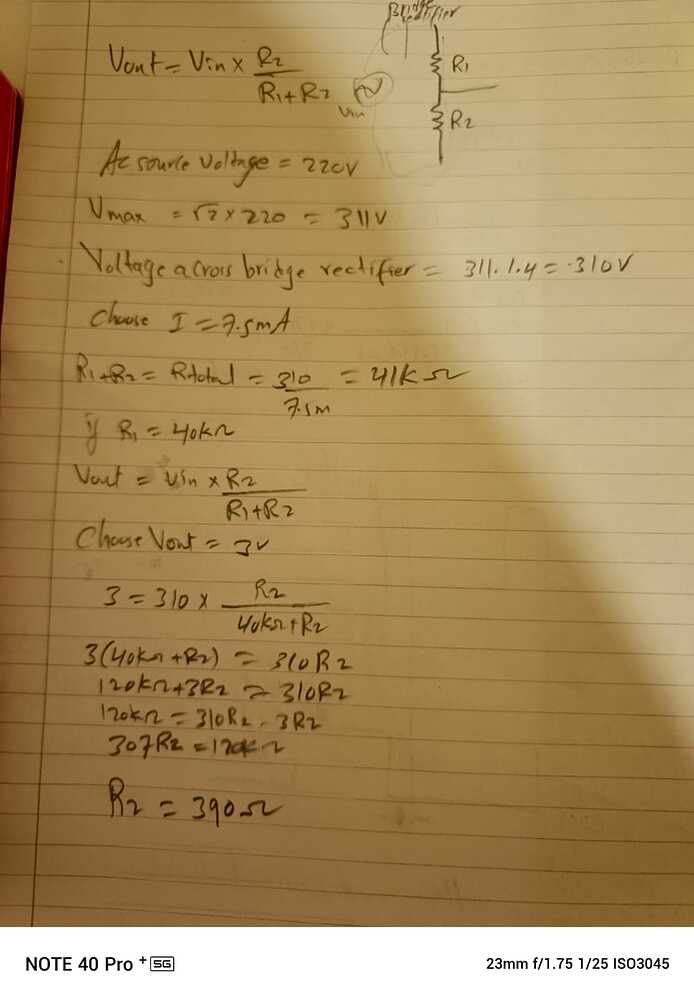 Bridge
rectifier
Vout = Vin × R2
R1+R2
Vin
R1
R2
Ac source voltage = 220V
Vmax = √2 × 220 = 311V
Voltage across bridge rectifier = 311.1.4 = 310V
Choose I = 7.5mA
R1+R2 = Rtotal = 310 = 41KΩ
7.5m
if R1 = 40KΩ
Vout = Vin × R2
R1+R2
Choose Vout = 3V
3 = 310 × R2
40KΩ+R2
3(40KΩ+R2) = 310R2
120KΩ+3R2 = 310R2
120KΩ = 310R2 - 3R2
307R2 = 120KΩ
R2 = 390Ω
NOTE 40 Pro+ 5G 23mm f/1.75 1/25 ISO3045